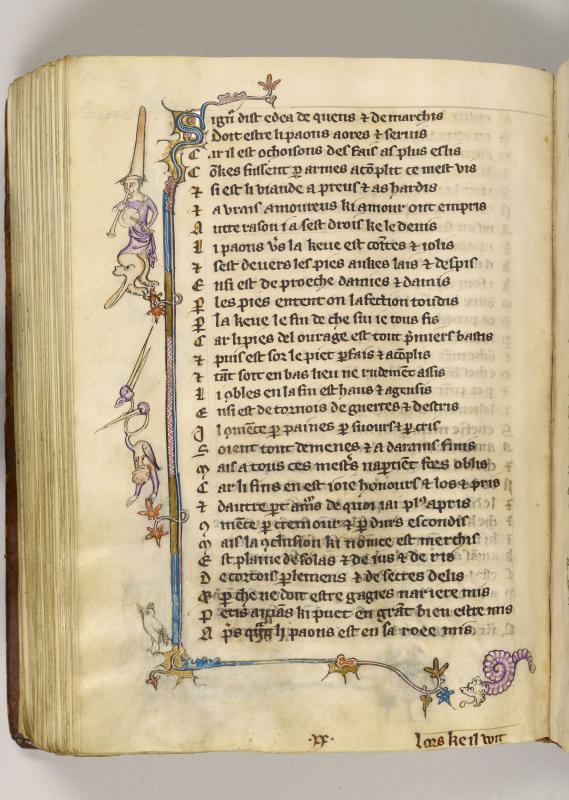 Signͬ dist edea de quens ⁊ de marchis
Doit estre li paons aores ⁊ seruis
Car il est ochoisons des fais as plus eslis
Cōkes fussent ꝑ armes acōplit ce mest vis
⁊ si est li viande a preus ⁊ as hardis
⁊ a vrais amoureus ki amour ont empris
Autre raison i a sest drois ke le deuis
Li paons vˢs la keue est cōtes ⁊ iolis
⁊ sest deuers les pies aukes lais ⁊ despis
Ensi est de proeche damies ⁊ damis
Per les pies entent on lafection toudis
Per la keue le fin de che siu ie tous fis
Car li pies del ourage est tout p̄miers bastis
⁊ puis est sor le piet ꝑfais ⁊ acōplis
⁊ tāt soit en bas lieu ne rudemēt assis
Li ꝯbles en la fin est haus ⁊ agensis
Ensi est de tornois de guerres ⁊ destris
ꝑ paines ꝑ suours ⁊ ꝑ cris
Soient tout demenes ⁊ a darains finis
Mais a tous ces mestˢs napartiēt fors oblis
Car li fins en est ioie honours ⁊ los ⁊ pris
⁊ dautre ꝑt am̄s de quoi iai plꝰ apris
ꝯmēce ꝑ cremour ⁊ ꝑ durs escondis
Mais la ꝯclusion ki nōmee est merchis
Est plaine de solas ⁊ de ius ⁊ de ris
De cortois ꝑlemens ⁊ de secres delis
ꝑ che ne doit estre gagies nariere mis
Petis ki puet en grāt bien estre mis
Ap̄s li paons est en sa roee mis
·xx· lors ke il voit